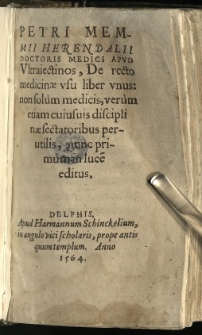 PETRI MEM-
MII HERENDALII
DOCTORIS MEDICI APVD
Vltraiectinos, De recto
medicinæ vsu liber vnus:
non solùm medicis, verùm
etiam cuiusuis discipli
næ sectatoribus per-
utilis, nunc pri-
mùm in lucē
editus.
DELPHIS,
Apud Harmannum Schinckelium,
in angulo vici scholaris, prope anti-
quum templum. Anno
1564.